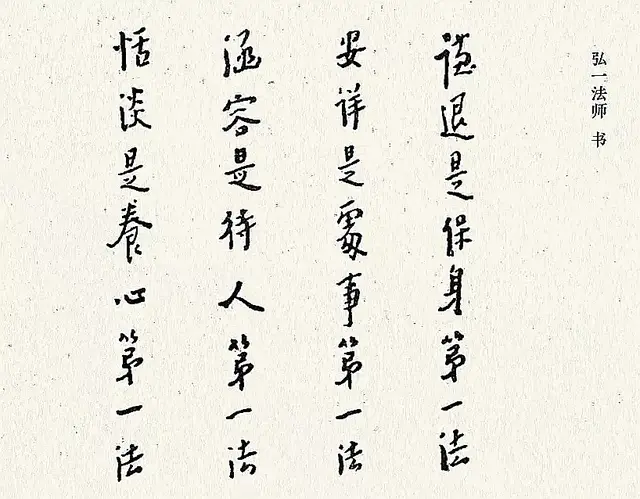 弘一法师 书
謙退是保身第一法
安詳是處事第一法
涵容是待人第一法
恬淡是養心第一法